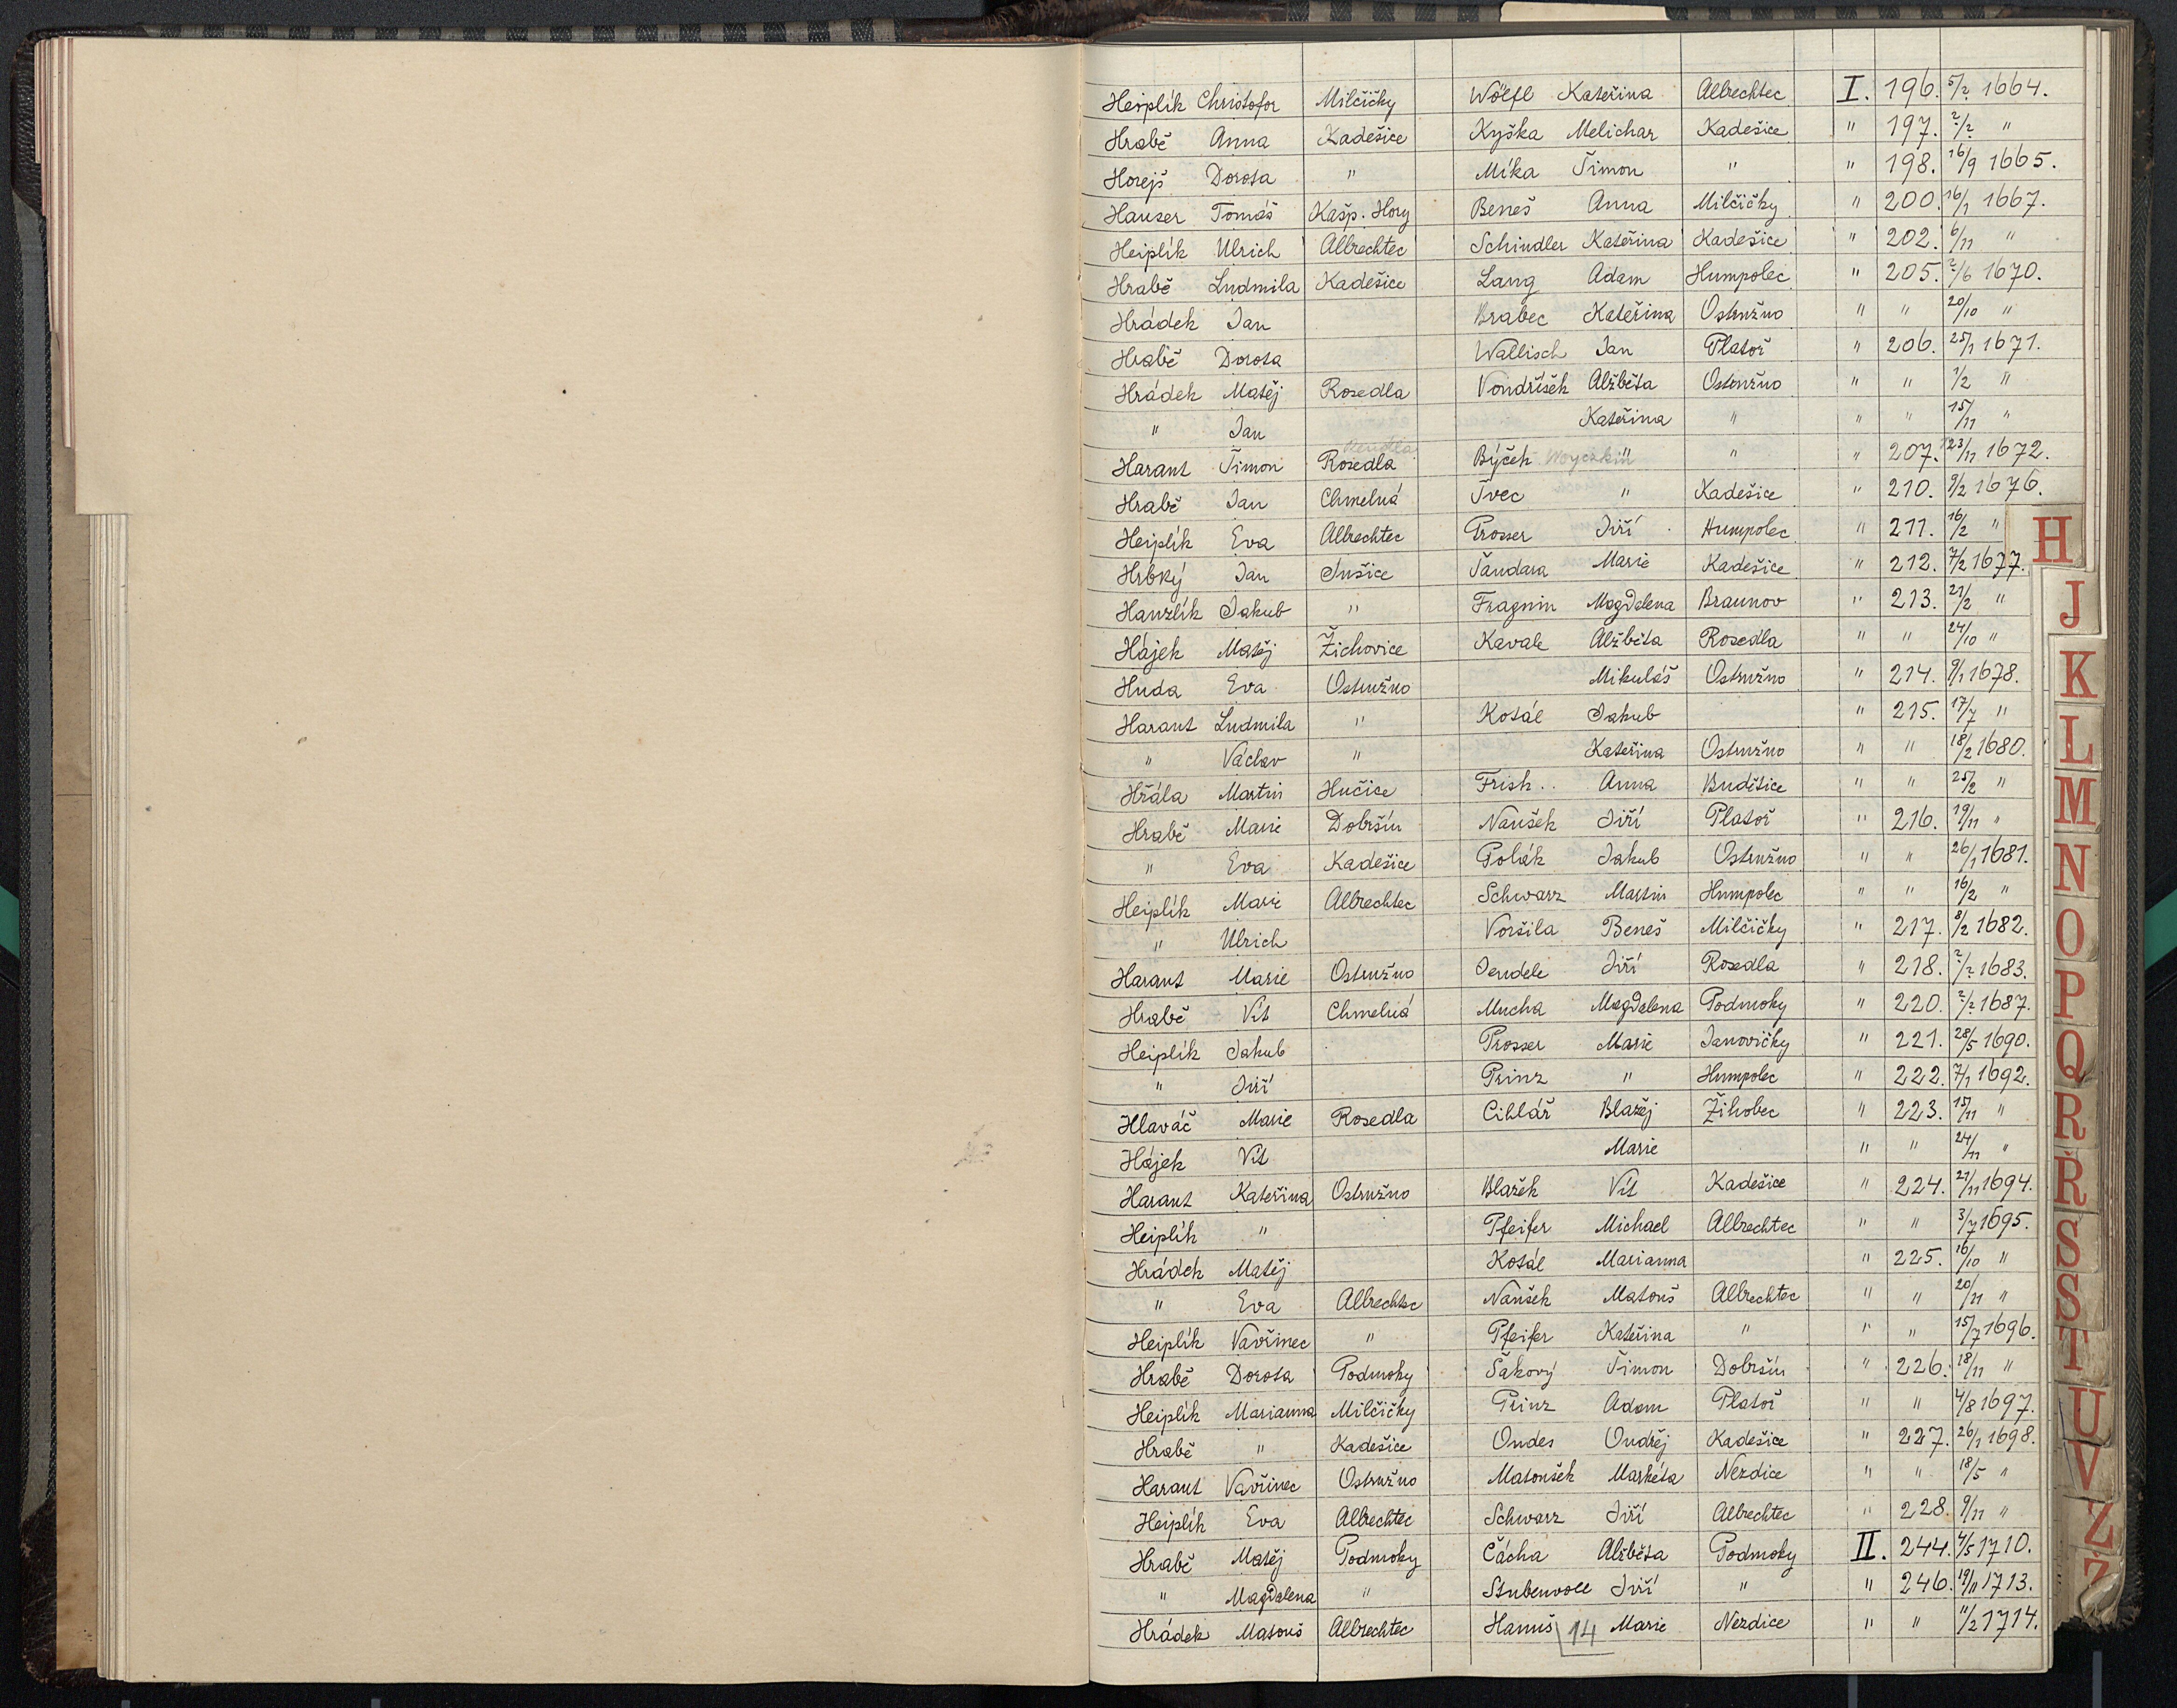 Heiplík Christofor Milčičky Wölfl Kateřina Albrechtec I. 196. 5/2 1664.
Hrabě Anna Kadešice Kyška Melichar Kadešice " 197. ?/2 "
Horejš Dorota " Míka Šimon " " 198. 16/9 1665.
Hauser Tomáš Kašp. Hory Beneš Anna Milčičky " 200. 16/1 1667.
Heiplík Ulrich Albrechtec Schindler Kateřina Kadešice " 202. 6/11 "
Hrabě Ludmila Kadešice Lang Adam Humpolec " 205. ?/6 1670.
Hrádek Jan Brabec Kateřina Ostružno " " 20/10 "
Hrabě Dorota Wallisch Jan Platoř " 206. 25/1 1671.
Hrádek Matěj Rosedla Vondříšek Alžběta Ostružno " " 1/2 "
" Jan Kateřina " " " 15/11 "
Harant Šimon Rosedla Býček Woyczkin " " " 207. 23/11 1672.
Hrabě Jan Chmelná Švec " Kadešice " 210. 9/2 1676.
Heiplík Eva Albrechtec Prosser Jiří Humpolec " 211. 16/2 "
Hrbký Jan Sušice Šandara Marie Kadešice " 212. 7/2 1677.
Hanzlík Jakub " Fragnin Magdalena Braunov " 213. 21/2 "
Hájek Matěj Žichovice Kavale Alžběta Rosedla " " 24/10 "
Huda Eva Ostružno Mikuláš Ostružno " 214. 9/1 1678.
Harant Ludmila " Kotál Jakub " 215. 17/7 "
" Václav " Kateřina Ostružno " " 18/2 1680.
Hřála Martin Hučice Frish.. Anna Budětice " " 25/2 "
Hrabě Marie Dobršín Naušek Jiří Platoř " 216. 19/11 "
" Eva Kadešice Polák Jakub Ostružno " " 26/1 1681.
Heiplík Marie Albrechtec Schwarz Martin Humpolec " " 16/2 "
" Ulrich Voršila Beneš Milčičky " 217. 8/2 1682.
Harant Marie Ostružno Jendele Jiří Rosedla " 218. ?/? 1683.
Hrabě Vít Chmelná Mucha Magdalena Podmoky " 220. ?/? 1687.
Heiplík Jakub Prosser Marie Janovičky " 221. 28/5 1690.
" Jiří Prinz " Humpolec " 222. 7/1 1692.
Hlaváč Marie Rosedla Cihlář Blažej Žihobec " 223. 15/11 "
Hájek Vít Marie " " 24/11 "
Harant Kateřina Ostružno Blažek Vít Kadešice " 224. 21/11 1694.
Heiplík " Pfeifer Michael Albrechtec " " 3/7 1695.
Hrádek Matěj Kotál Marianna " 225. 16/10 "
" Eva Albrechtec Naušek Matouš Albrechtec " " 20/11 "
Heiplík Vavřinec " Pfeifer Kateřina " " " 15/7 1696.
Hrabě Dorota Podmoky Šakový Šimon Dobršín " 226. 18/11 "
Heiplík Marianna Milčičky Prinz Adam Platoř " " 4/8 1697.
Hrabě " Kadešice Ondes Ondřej Kadešice " 227. 26/1 1698.
Harant Vavřinec Ostružno Matoušek Markéta Nezdice " " 18/5 "
Heiplík Eva Albrechtec Schwarz Jiří Albrechtec " 228. 9/11 "
Hrabě Matěj Podmoky Čácha Alžběta Podmoky II. 244. 4/5 1710.
" Magdalena " Stubenvoll Jiří " " 246. 19/11 1713.
Hrádek Matouš Albrechtec Hamiš 14 Marie Nezdice " " 11/2 1714.
H
J
K
L
M
N
O
P
Q
R
Ř
S
Š
T
U
V
Z
Ž